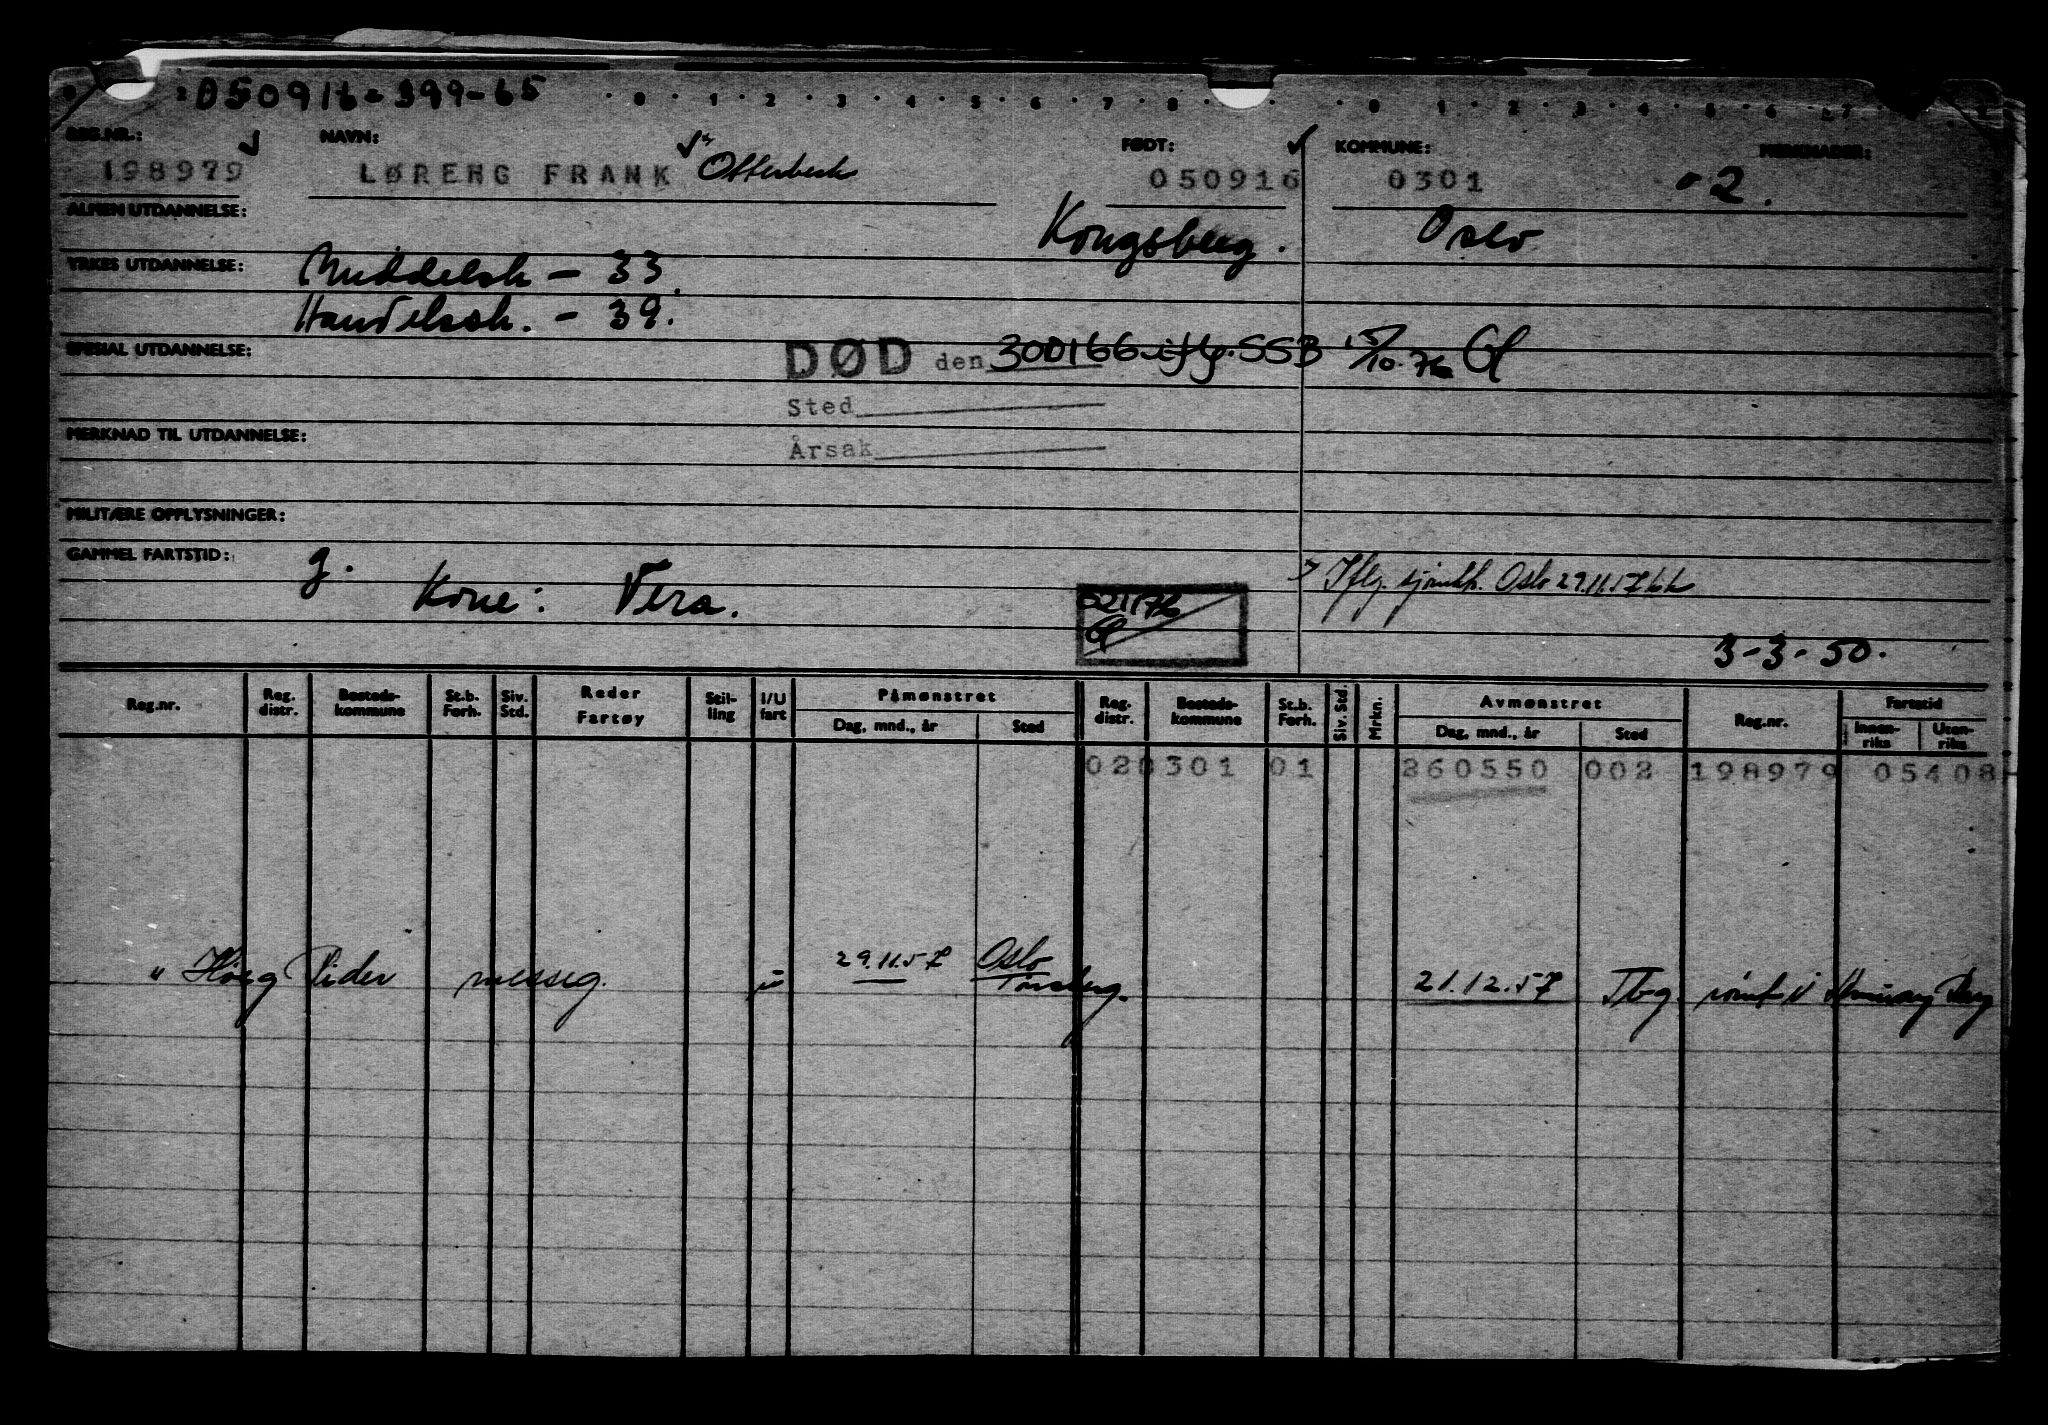 050916-399-65
0 . 1 . 2 . 3 . 4 . 5 . 6 . 7 . 8 . 0 1 . 2 . 3 . 4 . 5 . 6 . 7
REG.NR.: NAVN: FØDT: KOMMUNE: MERKNADER:
198979 LØRENG FRANK Otterbech 050916 0301 - 2.
ALMEN UTDANNELSE: Kongsberg. Oslo
YRKES UTDANNELSE: Middelsk - 33.
Handelssk. - 39.
SPESIAL UTDANNELSE: DØD den 300166 iflg. SSB 15/10.76 Gl
Sted
MERKNAD TIL UTDANNELSE:
Årsak
MILITÆRE OPPLYSNINGER:
GAMMEL FARTSTID: g. Iflg. sjømkh. Oslo 29.11.57
Kone: Vera.
3-3-50.
Reg.nr. Reg. distr. Bosteds-kommune St.b. Forh. Siv. Std. Reder Fartøy Stil-ling I/U fart Påmønstret Dag, mnd., år Sted Reg. distr. Bosteds-kommune St.b. Forh. Siv. Std. Mrkn. Avmønstret Dag, mnd., år Sted Reg.nr. Fartstid Innen-riks Uten-riks
020301 01 260550 002 198979 05408
" Höeg Rider messeg. u 29.11.57 Oslo Tønsberg. 21.12.57 Tbg.